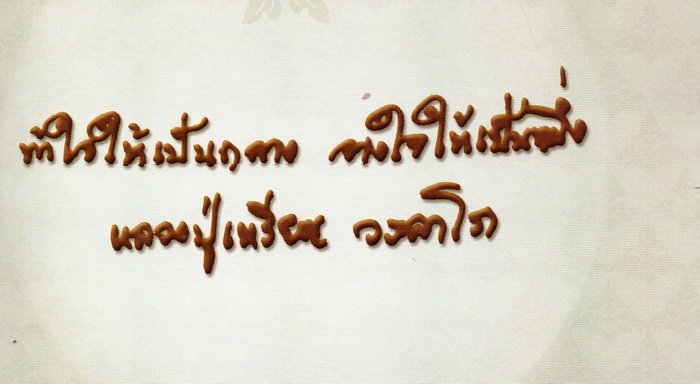 ทำใจให้เป็นกลาง วางใจให้เป็นหนึ่ง
หลวงปู่เหรียญ วรลาโภ